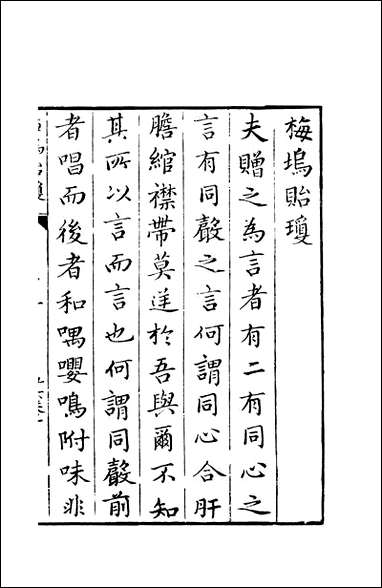 梅塢貽瓊
夫贈之為言者有二有同心之
言有同聲之言何謂同心合肝
膽綰襟帶莫逆於吾與爾不知
其所以言而言也何謂同聲前
者唱而後者和喁嚶鳴附味非